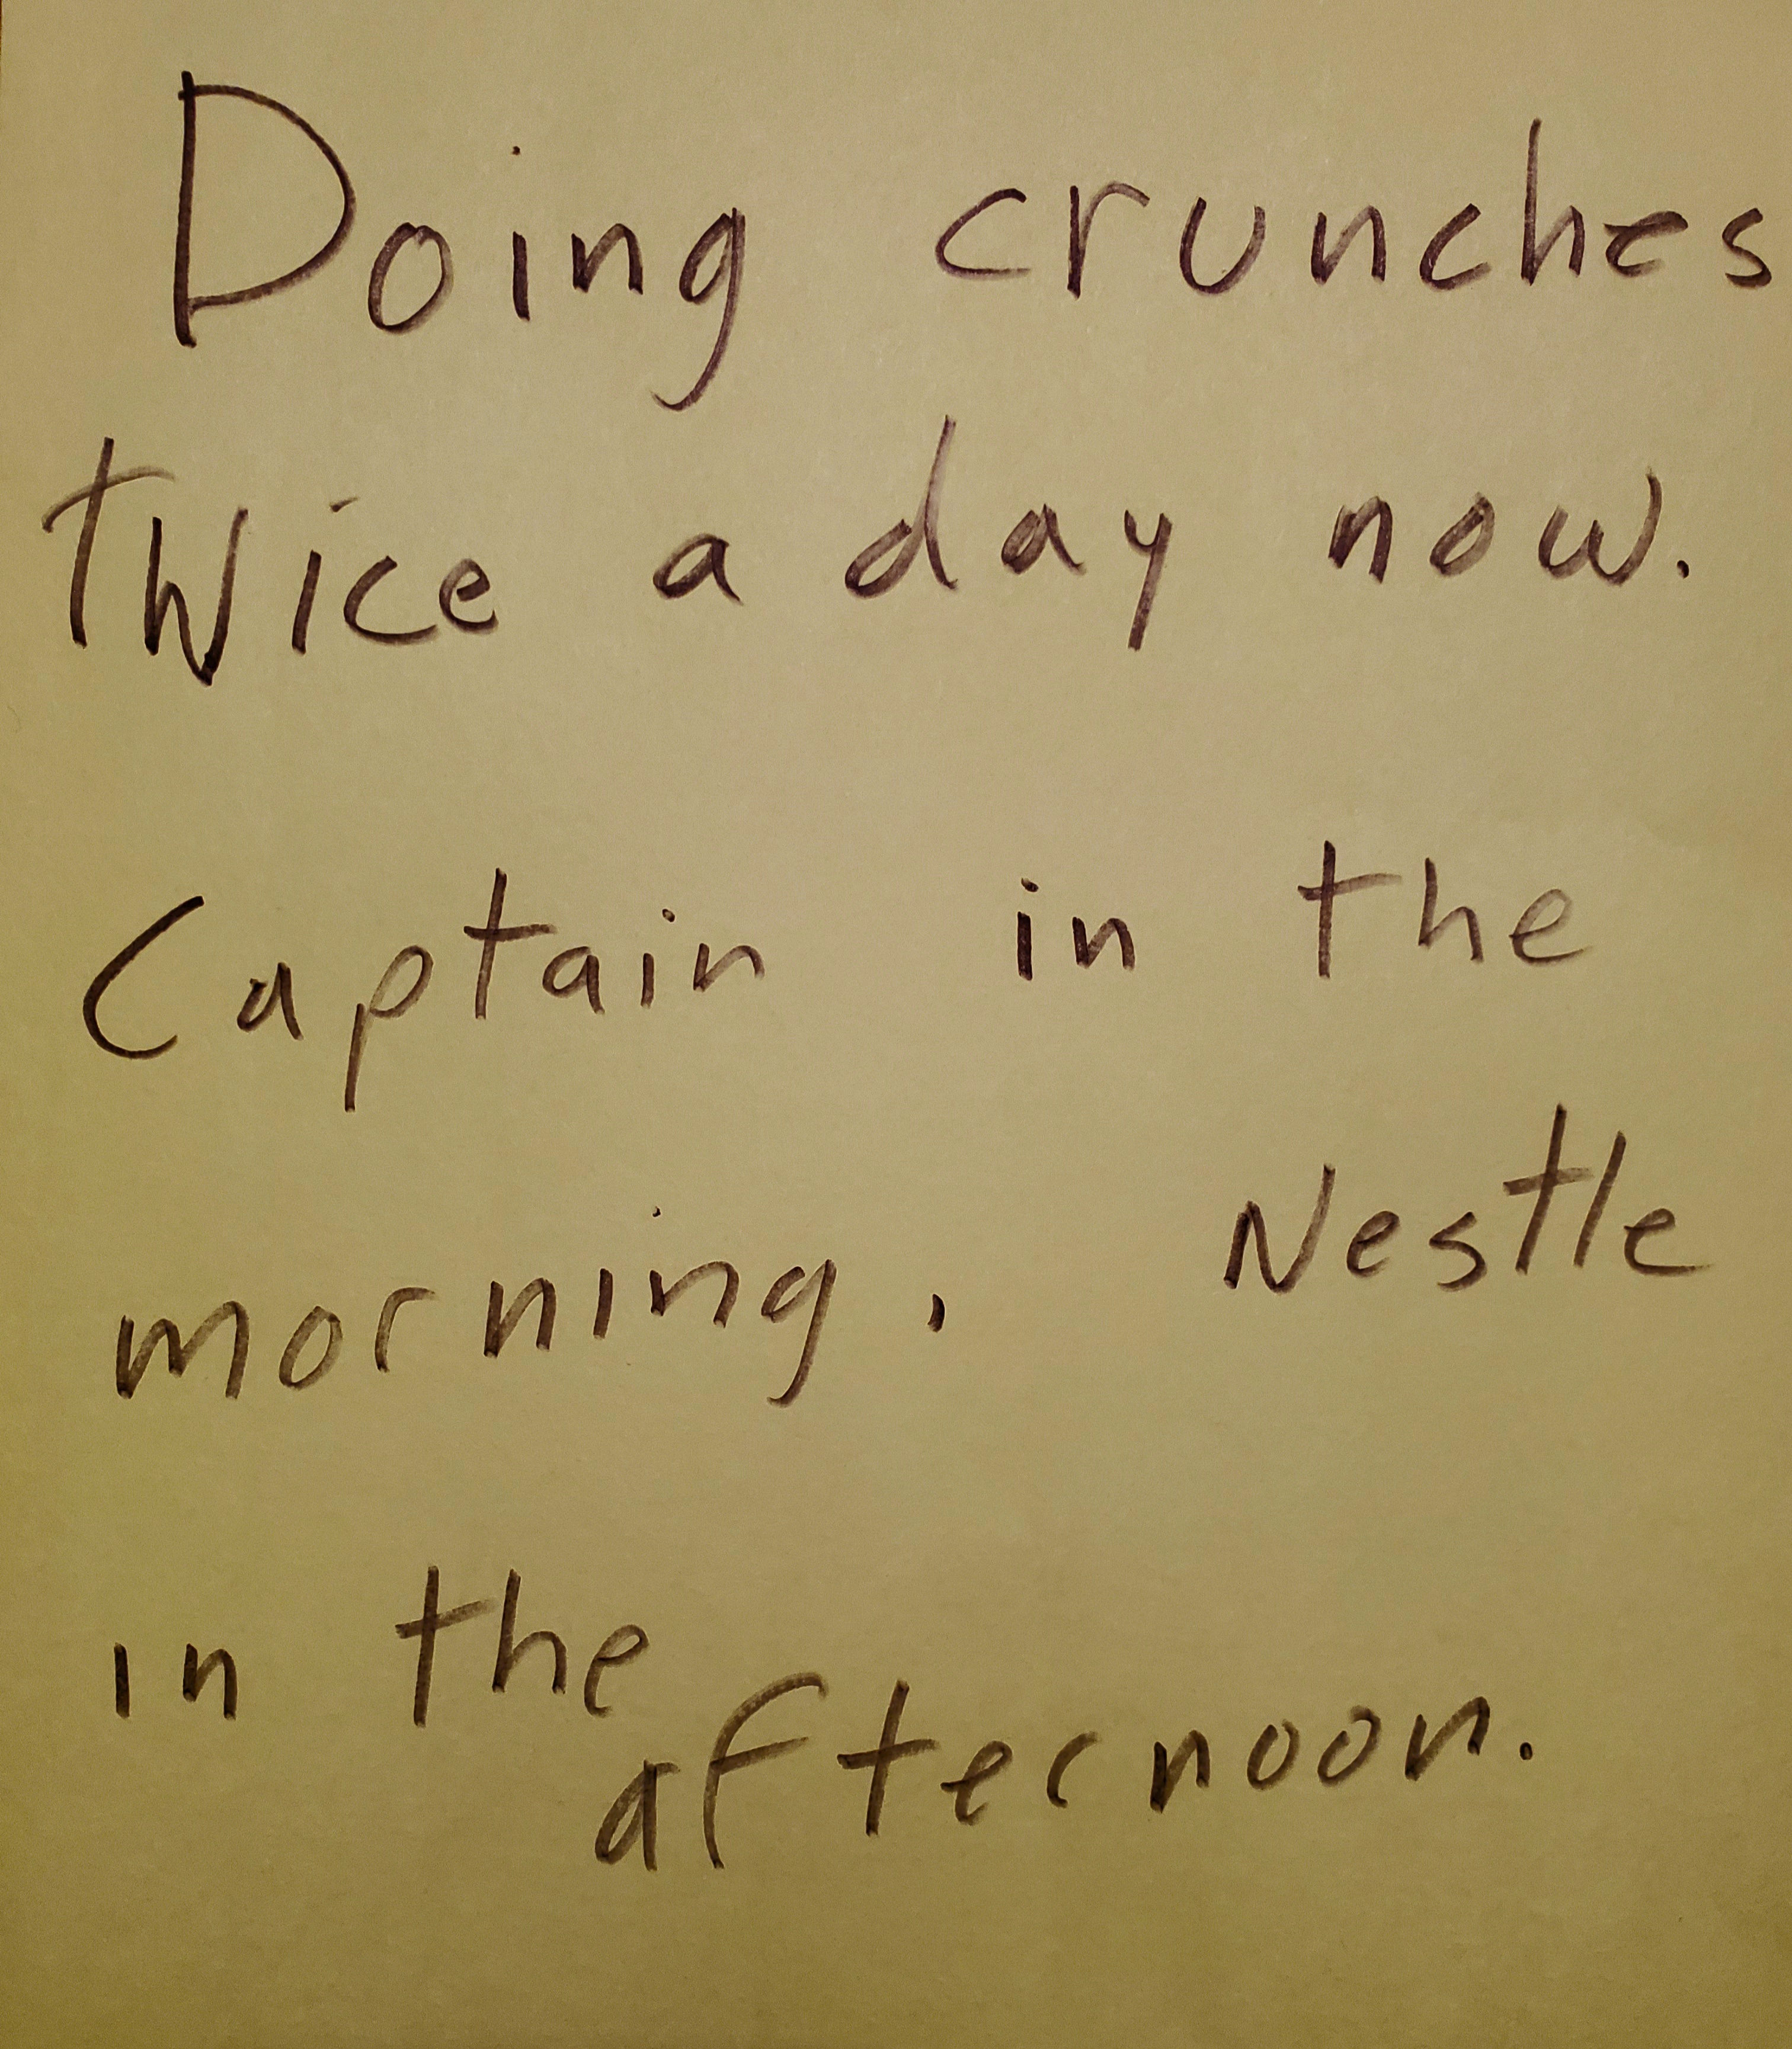 Doing crunches
twice a day now.
Captain in the
morning. Nestle
in the
afternoon.